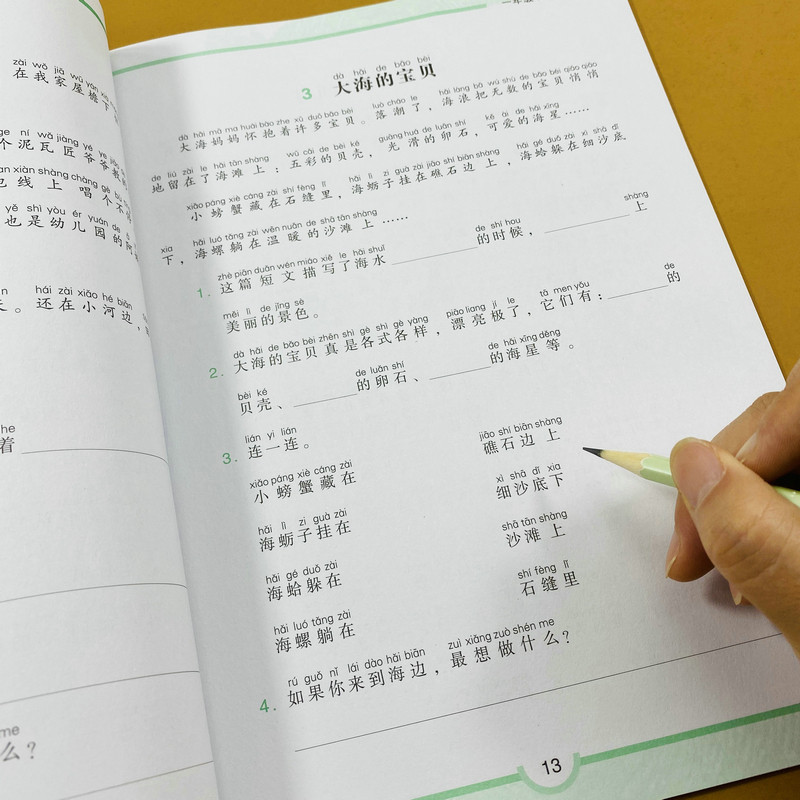 zài wǒ jiā wū yán
在我家屋檐下
ní wǎ jiàng yé ye
个泥瓦匠爷爷
xiàn shàng chàng gè bù
线上唱个不
yě shì yòu ér yuán de
也是幼儿园的阿
hái zài xiǎo hé biān
。还在小河边,
zhe
着
me
么?
dà hǎi de bǎo bèi
3 大海的宝贝
dà hǎi mā ma huái bào zhe xǔ duō bǎo bèi luò cháo le hǎi làng bǎ wú shù de bǎo bèi qiāo qiāo
大海妈妈怀抱着许多宝贝。落潮了,海浪把无数的宝贝悄悄
de liú zài le hǎi tān shàng wǔ cǎi de bèi ké guāng huá de luǎn shí kě ài de hǎi xīng
地留在了海滩上:五彩的贝壳,光滑的卵石,可爱的海星……
xiǎo páng xiè cáng zài shí fèng lǐ hǎi lì zi guà zài jiāo shí biān shàng hǎi gé duǒ zài xì shā dǐ
小螃蟹藏在石缝里,海蛎子挂在礁石边上,海蛤躲在细沙底
xia hǎi luó tǎng zài wēn nuǎn de shā tān shàng
下,海螺躺在温暖的沙滩上……
zhè piān duǎn wén miáo xiě le hǎi shuǐ de shí hou shàng
1. 这篇短文描写了海水________的时候,________上
měi lì de jǐng sè
美丽的景色。
dà hǎi de bǎo bèi zhēn shì gè shì gè yàng piào liang jí le tā men yǒu de
2. 大海的宝贝真是各式各样,漂亮极了,它们有:______的
bèi ké de luǎn shí de hǎi xīng děng
贝壳、______的卵石、______的海星等。
lián yi lián
3. 连一连。
xiǎo páng xiè cáng zài jiāo shí biān shàng
小螃蟹藏在 礁石边上
hǎi lì zi guà zài xì shā dǐ xia
海蛎子挂在 细沙底下
hǎi gé duǒ zài shā tān shàng
海蛤躲在 沙滩上
hǎi luó tǎng zài shí fèng lǐ
海螺躺在 石缝里
rú guǒ nǐ lái dào hǎi biān zuì xiǎng zuò shén me
4. 如果你来到海边,最想做什么?
13